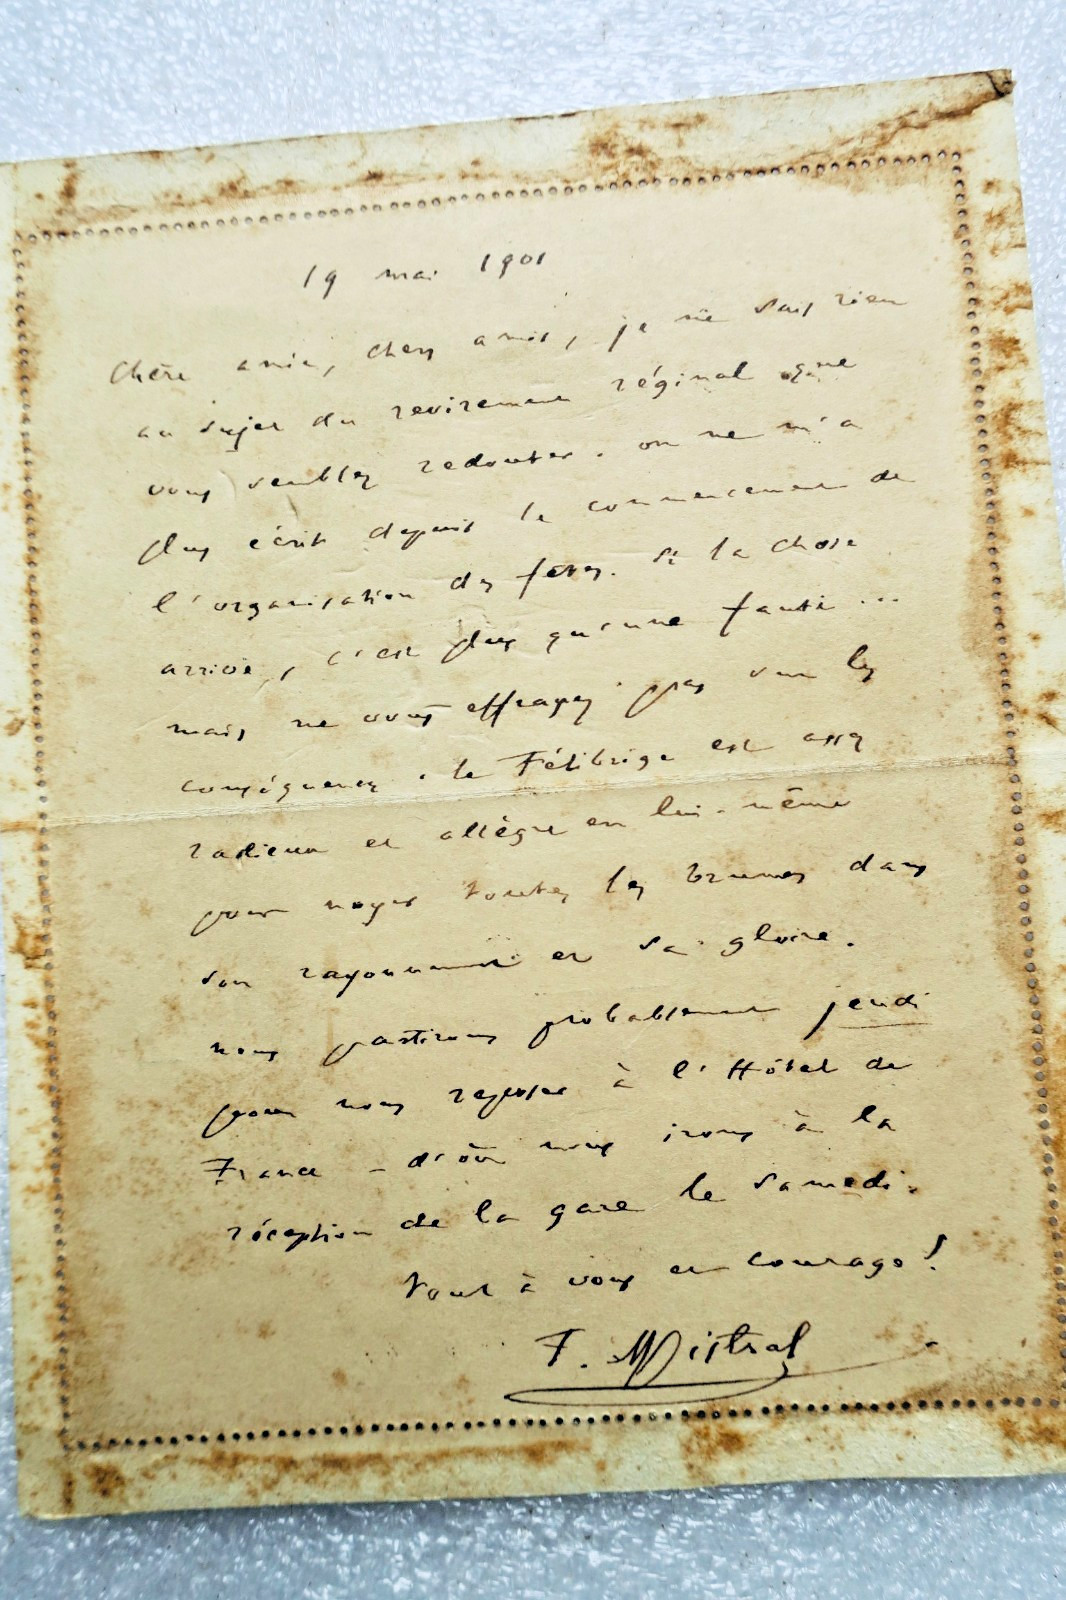 19 mai 1901
Chère amie, chers amis, je ne sais rien
au sujet du revirement réginal que
vous semblez redouter. on ne m'a
plus écrit depuis le commencement de
l'organisation des fêtes. Si la chose
arrive, c'est plus qu'une faute...
mais ne vous effrayez pas sur les
conséquences. le Félibrige est assez
radieux et allègre en lui-même
pour noyer toutes les brumes dans
son rayonnement et sa gloire.
nous partirons probablement jeudi
pour nous reposer à l'Hôtel de
France - d'où nous irons à la
réception de la gare le samedi.
tout à vous et courage!
F. Mistral